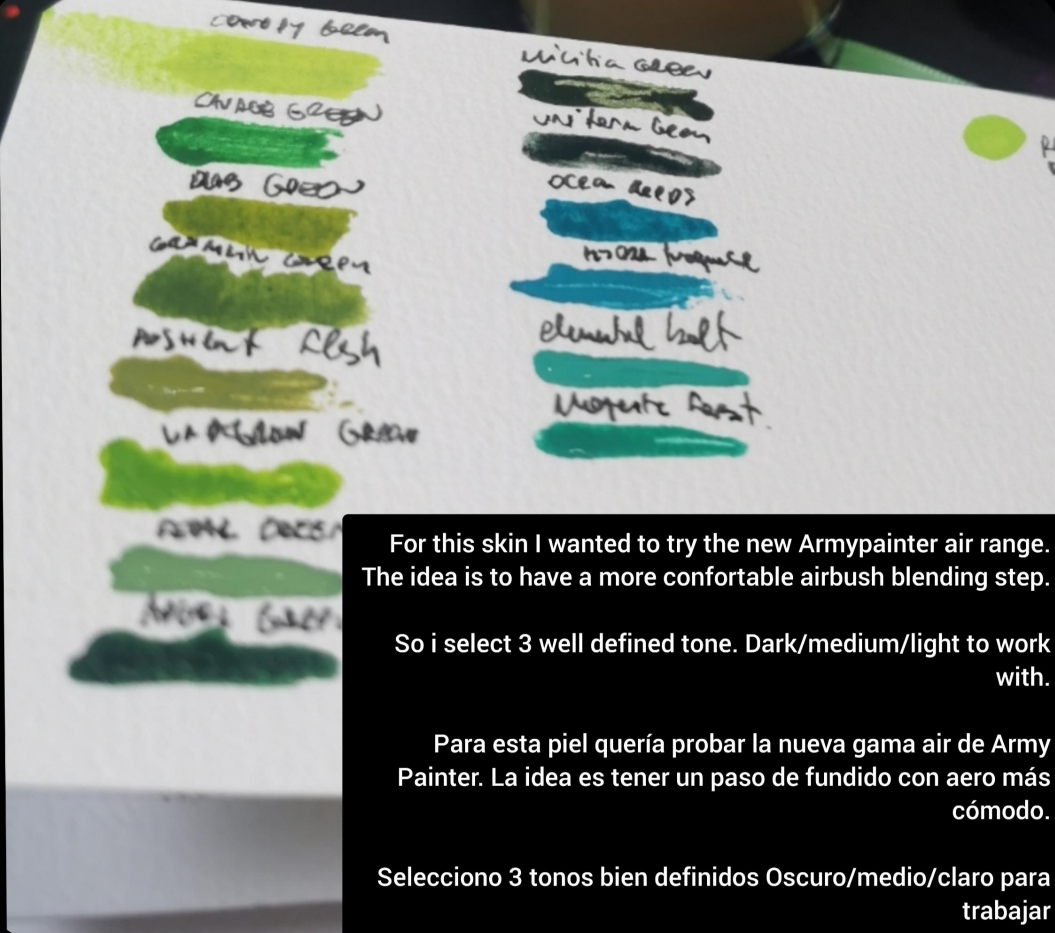 CANOPY GREEN
SAVAGE GREEN
DRAB GREEN
GREMLIN GREEN
PESTILENT flesh
GREEN
GREEN
ANGEL GREEN
Militia GREEN
Uniform Green
Ocean DEEPS
HYDRA turquoise
elemental bolt
Majestic Forest.
For this skin I wanted to try the new Armypainter air range.
The idea is to have a more confortable airbush blending step.
So i select 3 well defined tone. Dark/medium/light to work
with.
Para esta piel quería probar la nueva gama air de Army
Painter. La idea es tener un paso de fundido con aero más
cómodo.
Selecciono 3 tonos bien definidos Oscuro/medio/claro para
trabajar